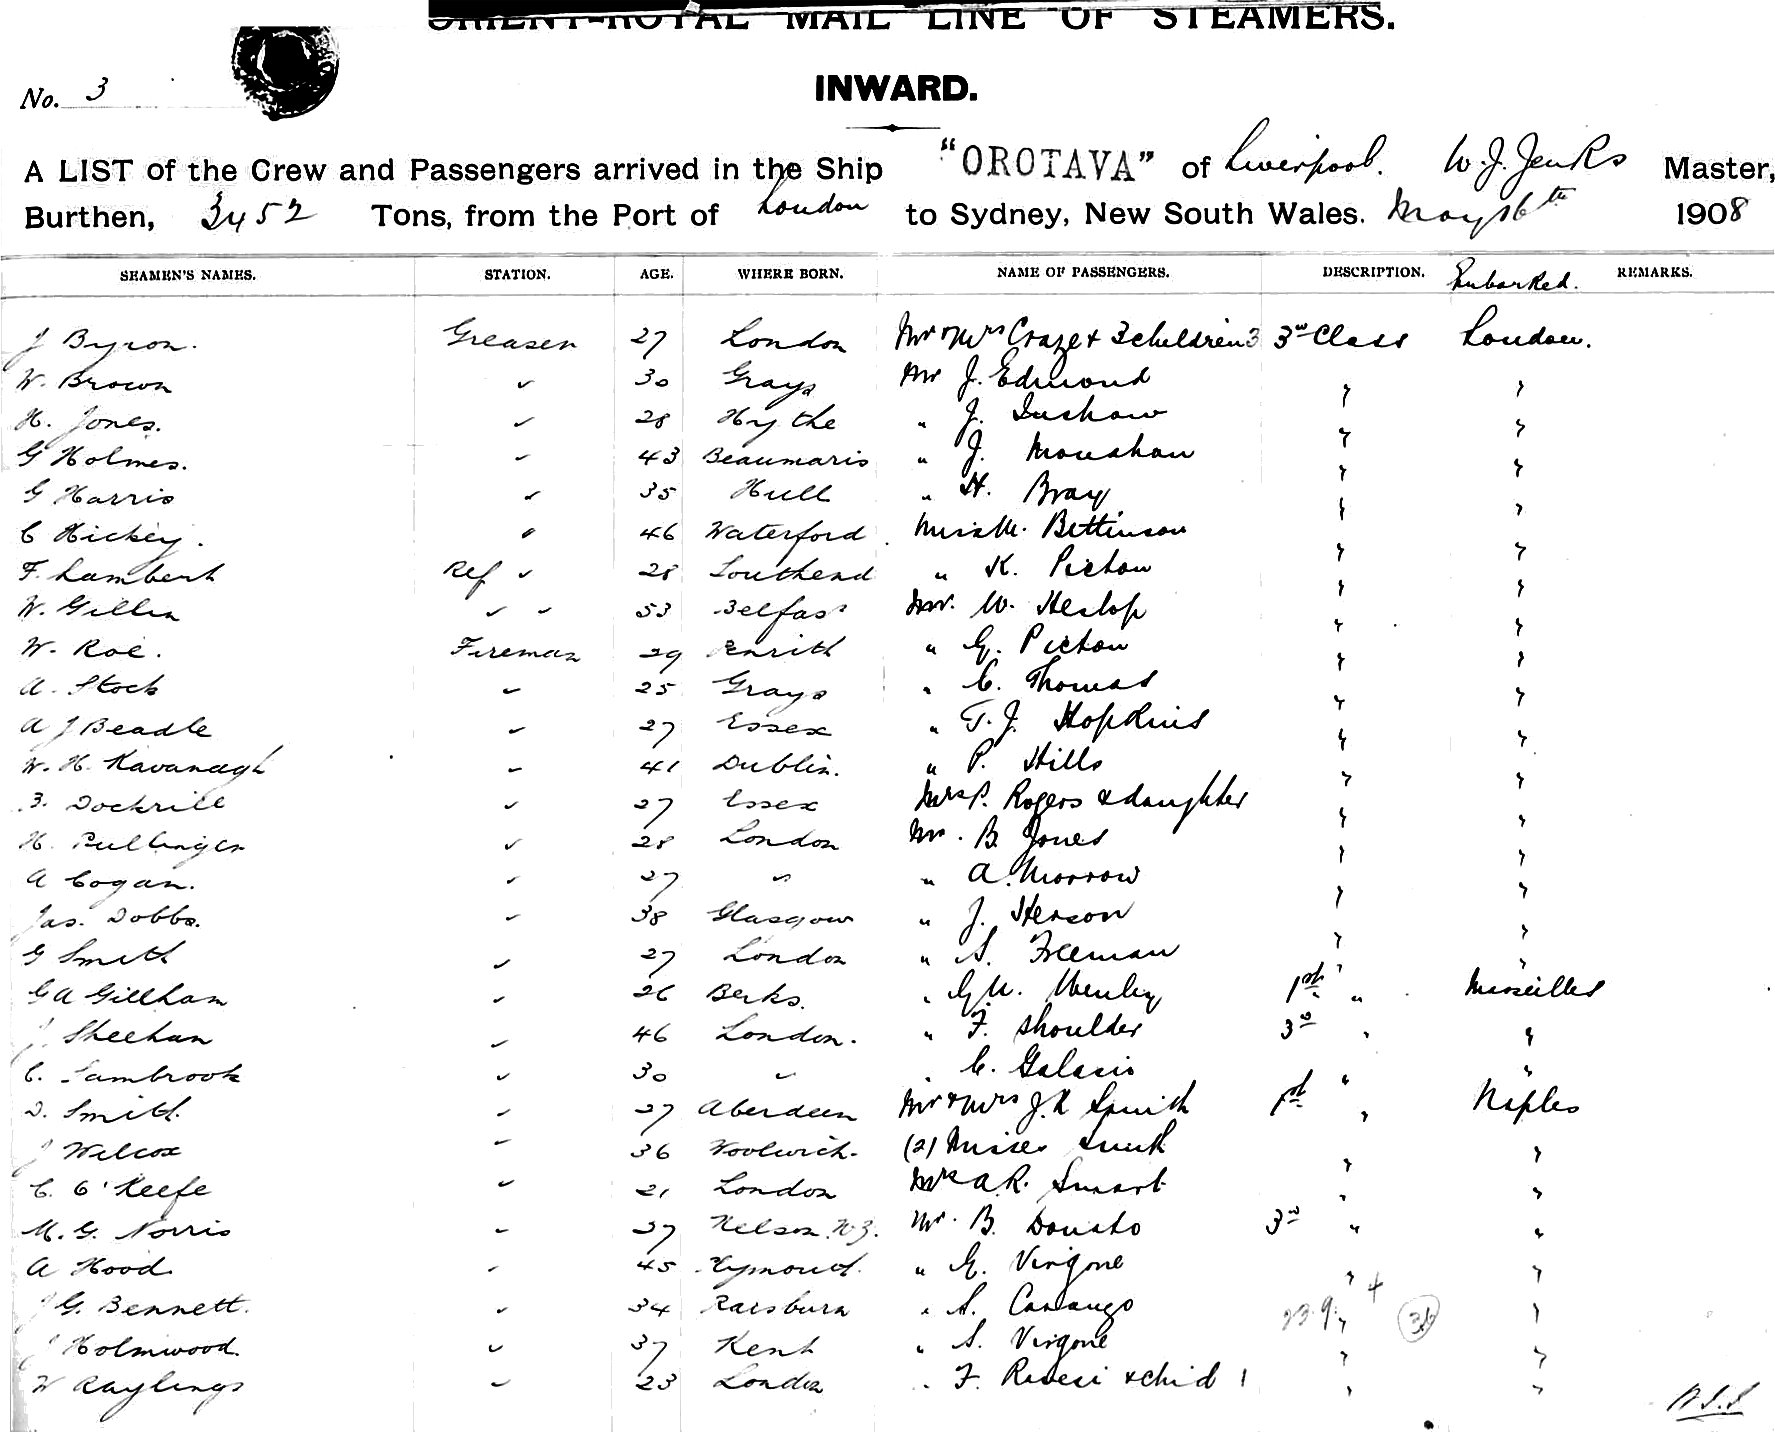 ORIENT-ROYAL MAIL LINE OF STEAMERS.
No. 3
INWARD.
A LIST of the Crew and Passengers arrived in the Ship "OROTAVA" of Liverpool. W. J. Jenks Master,
Burthen, 3452 Tons, from the Port of London to Sydney, New South Wales. May 16th 1908
SEAMEN'S NAMES. STATION. AGE. WHERE BORN. NAME OF PASSENGERS. DESCRIPTION. Embarked. REMARKS.
J Byron. Greaser 27 London Mr & Mrs Craze & 3 children 3 3rd Class London.
W. Brown ✓ 30 Grays Mr J. Edmond " "
H. Jones. ✓ 28 Hythe " J. " "
G Holmes. ✓ 43 Beaumaris " J. Monahan " "
G Harris ✓ 35 Hull " H. Bray " "
C Hickey. ✓ 46 Waterford Miss M. Bettinson " "
F. Lambert Ref ✓ 28 Southend " K. Picton " "
W. Gillin ✓ ✓ 53 Belfast Mr. W. Heslop " "
W. Roe. Fireman 29 Penrith " G. Picton " "
A. Stock ✓ 25 Grays " C. Thomas " "
A J Beadle ✓ 27 Essex " T. J. Hopkins " "
W. H. Kavanagh ✓ 41 Dublin. " P. Hills " "
Dockrill ✓ 27 Essex Mrs P. Rogers & daughter " "
H. Pullinger ✓ 28 London Mr. B. Jones " "
A Cogan. ✓ 27 " " A. Morrow " "
Jas. Dobbs. ✓ 38 Glasgow " J. Herson " "
G Smith ✓ 27 London " S. Freeman " "
G A Gillham ✓ 26 Berks. " G. Henley 1st " Marseilles
J Sheehan ✓ 46 London. " F. Shoulder 3rd " "
C. Sambrook ✓ 30 " " C. Galasis " "
D. Smith. ✓ 27 Aberdeen Mr & Mrs J. R Smith 1st " Naples
J Wilcox ✓ 36 Woolwich. (2) Misses Smith " "
C. O'Keefe ✓ 21 London A. R. Smart " "
M. G. Norris ✓ 27 Nelson N.Z. Mr. B. Donato 3rd " "
A Hood. ✓ 45 Plymouth. " G. Virgone " "
J G. Bennett. ✓ 34 " S. Camango " "
J Holmwood. ✓ 37 Kent " S. Virgone " "
W Raylings ✓ 23 London " F. & child 1 " "